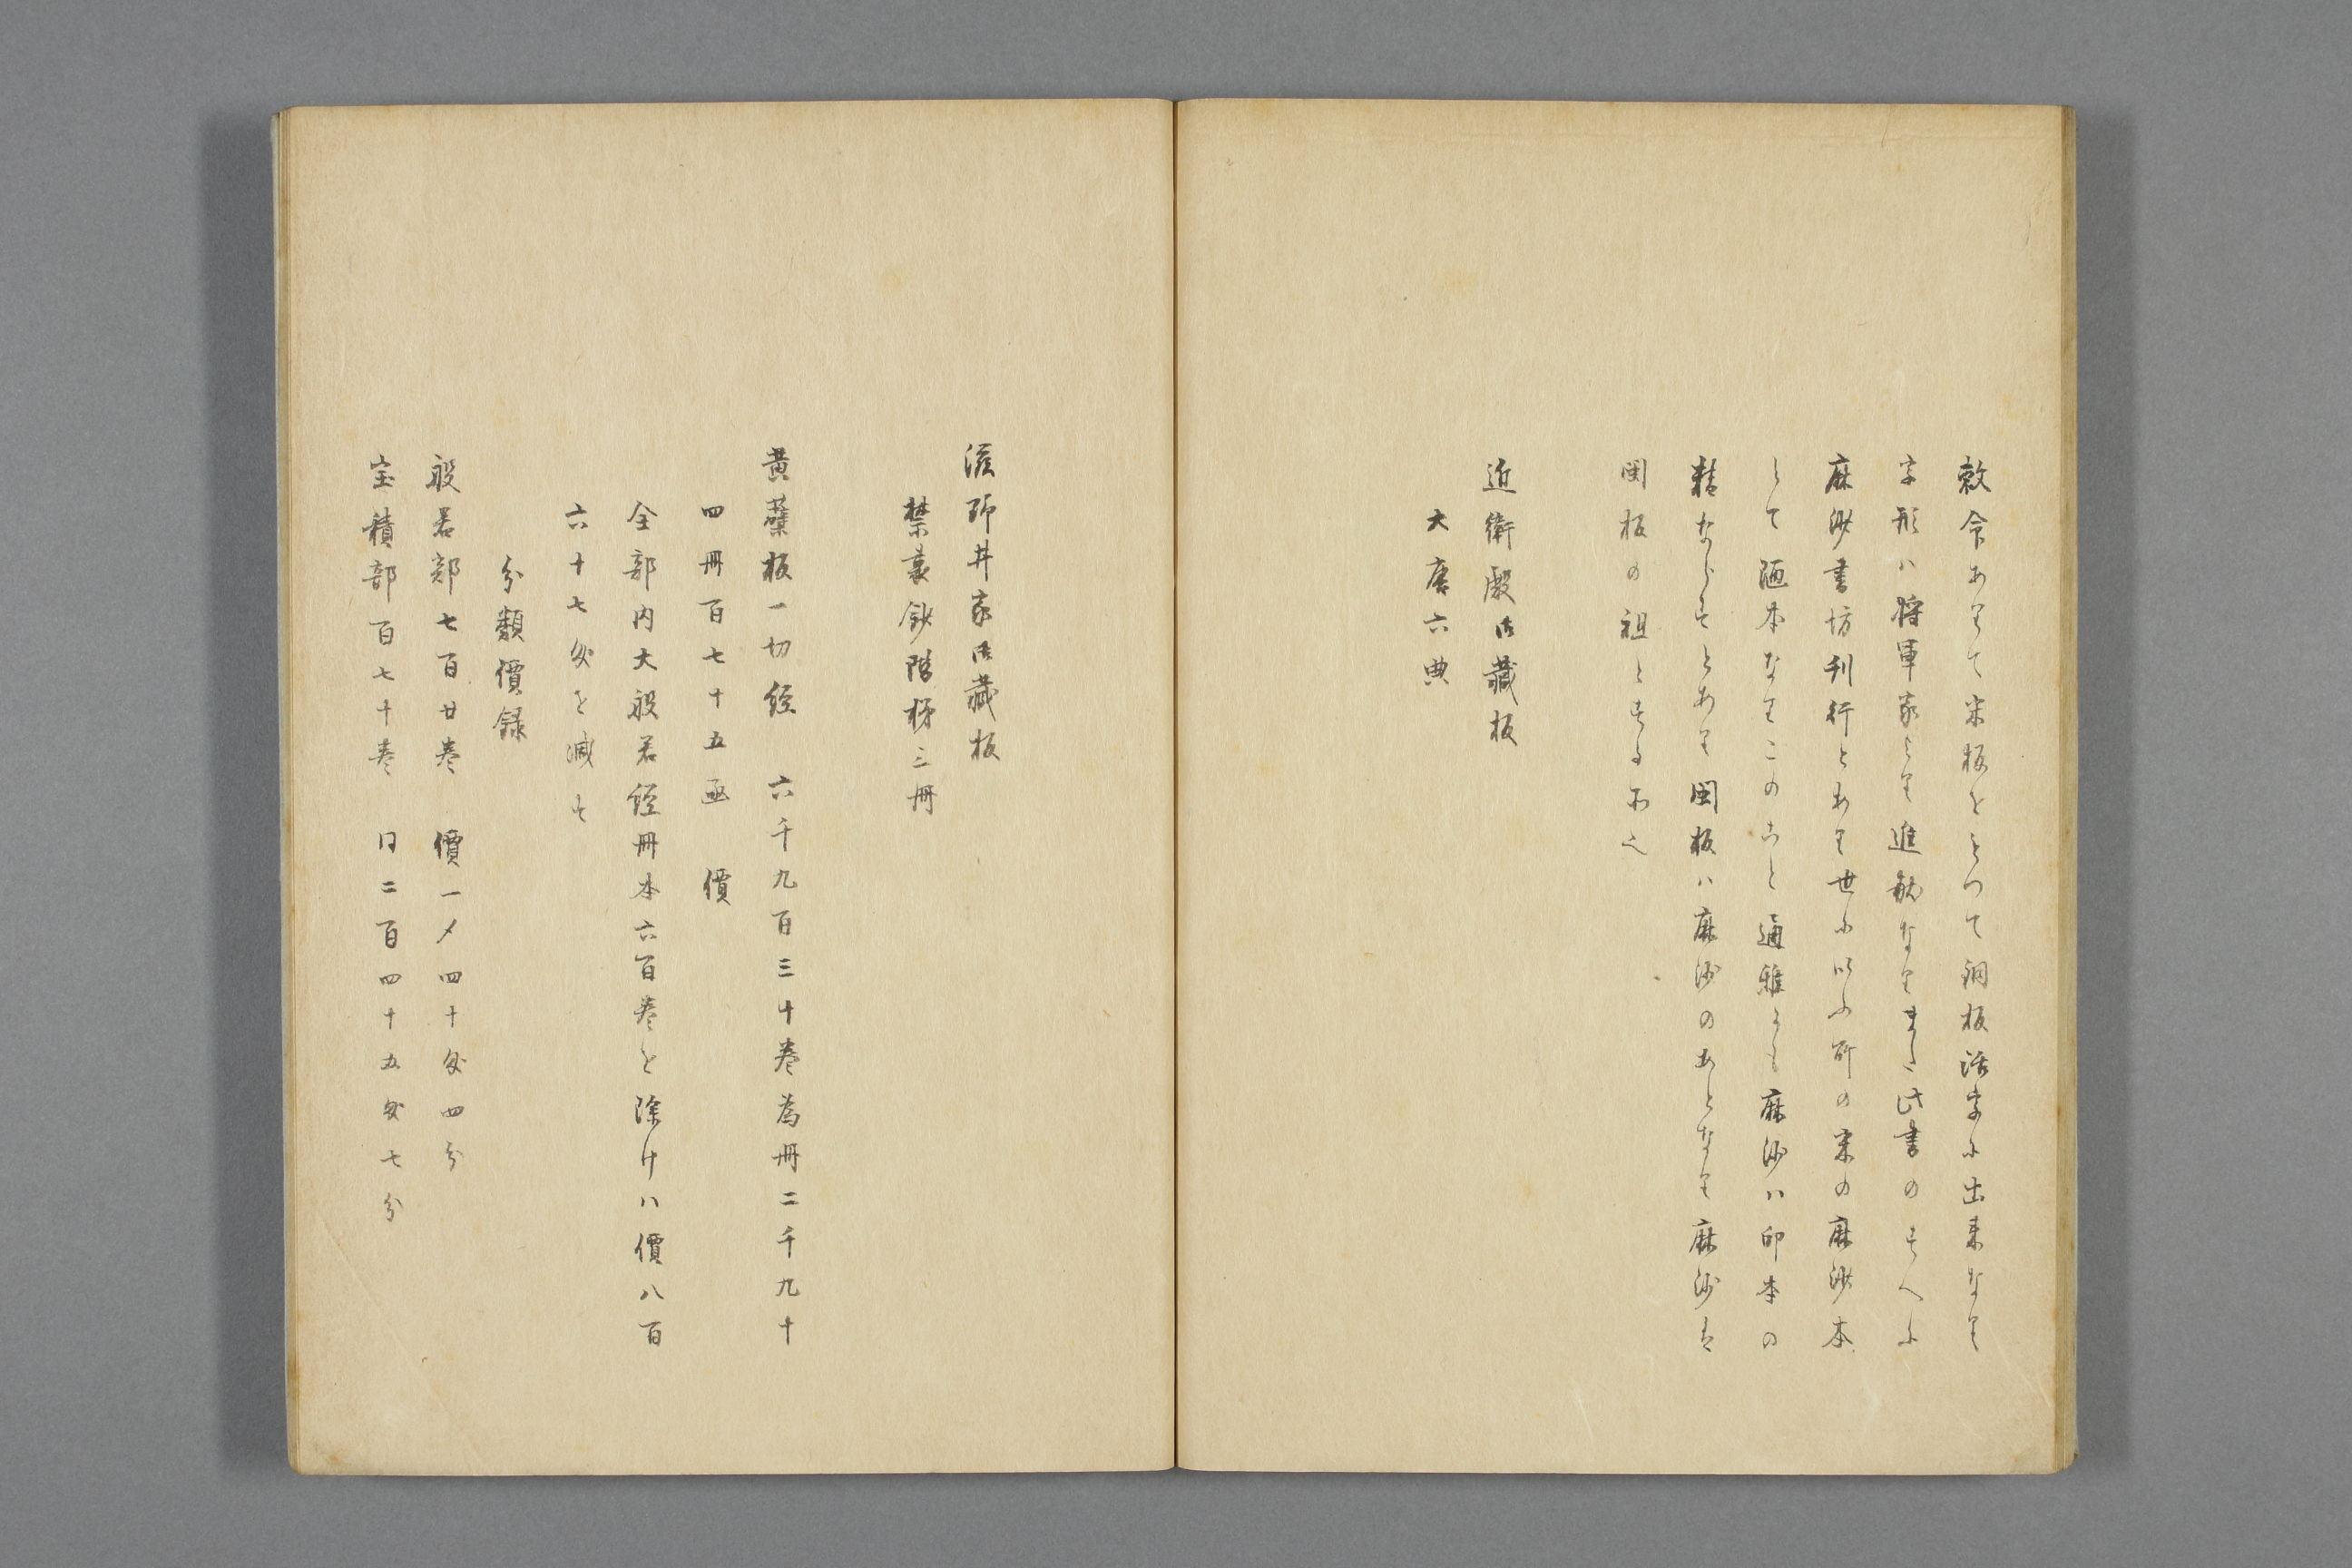 敕令ありて宋板をもつて銅板活字に出来なり
字形ハ将軍家より進献なりまた此書のすへに
麻沙書坊刊行とあり世にいふ所の宋の麻沙本
とて陋本なりこのこと通雅にも麻沙ハ印本の
精ならすとあり閩板ハ麻沙のあとなり麻沙は
閩板の祖とする所也
近衛殿御藏板
大唐六典
滋野井家御藏板
禁裏鈔階梯三冊
黄蘗板一切経　六千九百三十巻為冊二千九十
四冊百七十五函　價
全部内大般若経冊本六百巻を除けハ價八百
六十七匁を減す
分類價録
般若部七百廿巻　價一〆四十匁四分
宝積部百七十巻　同二百四十五匁七分